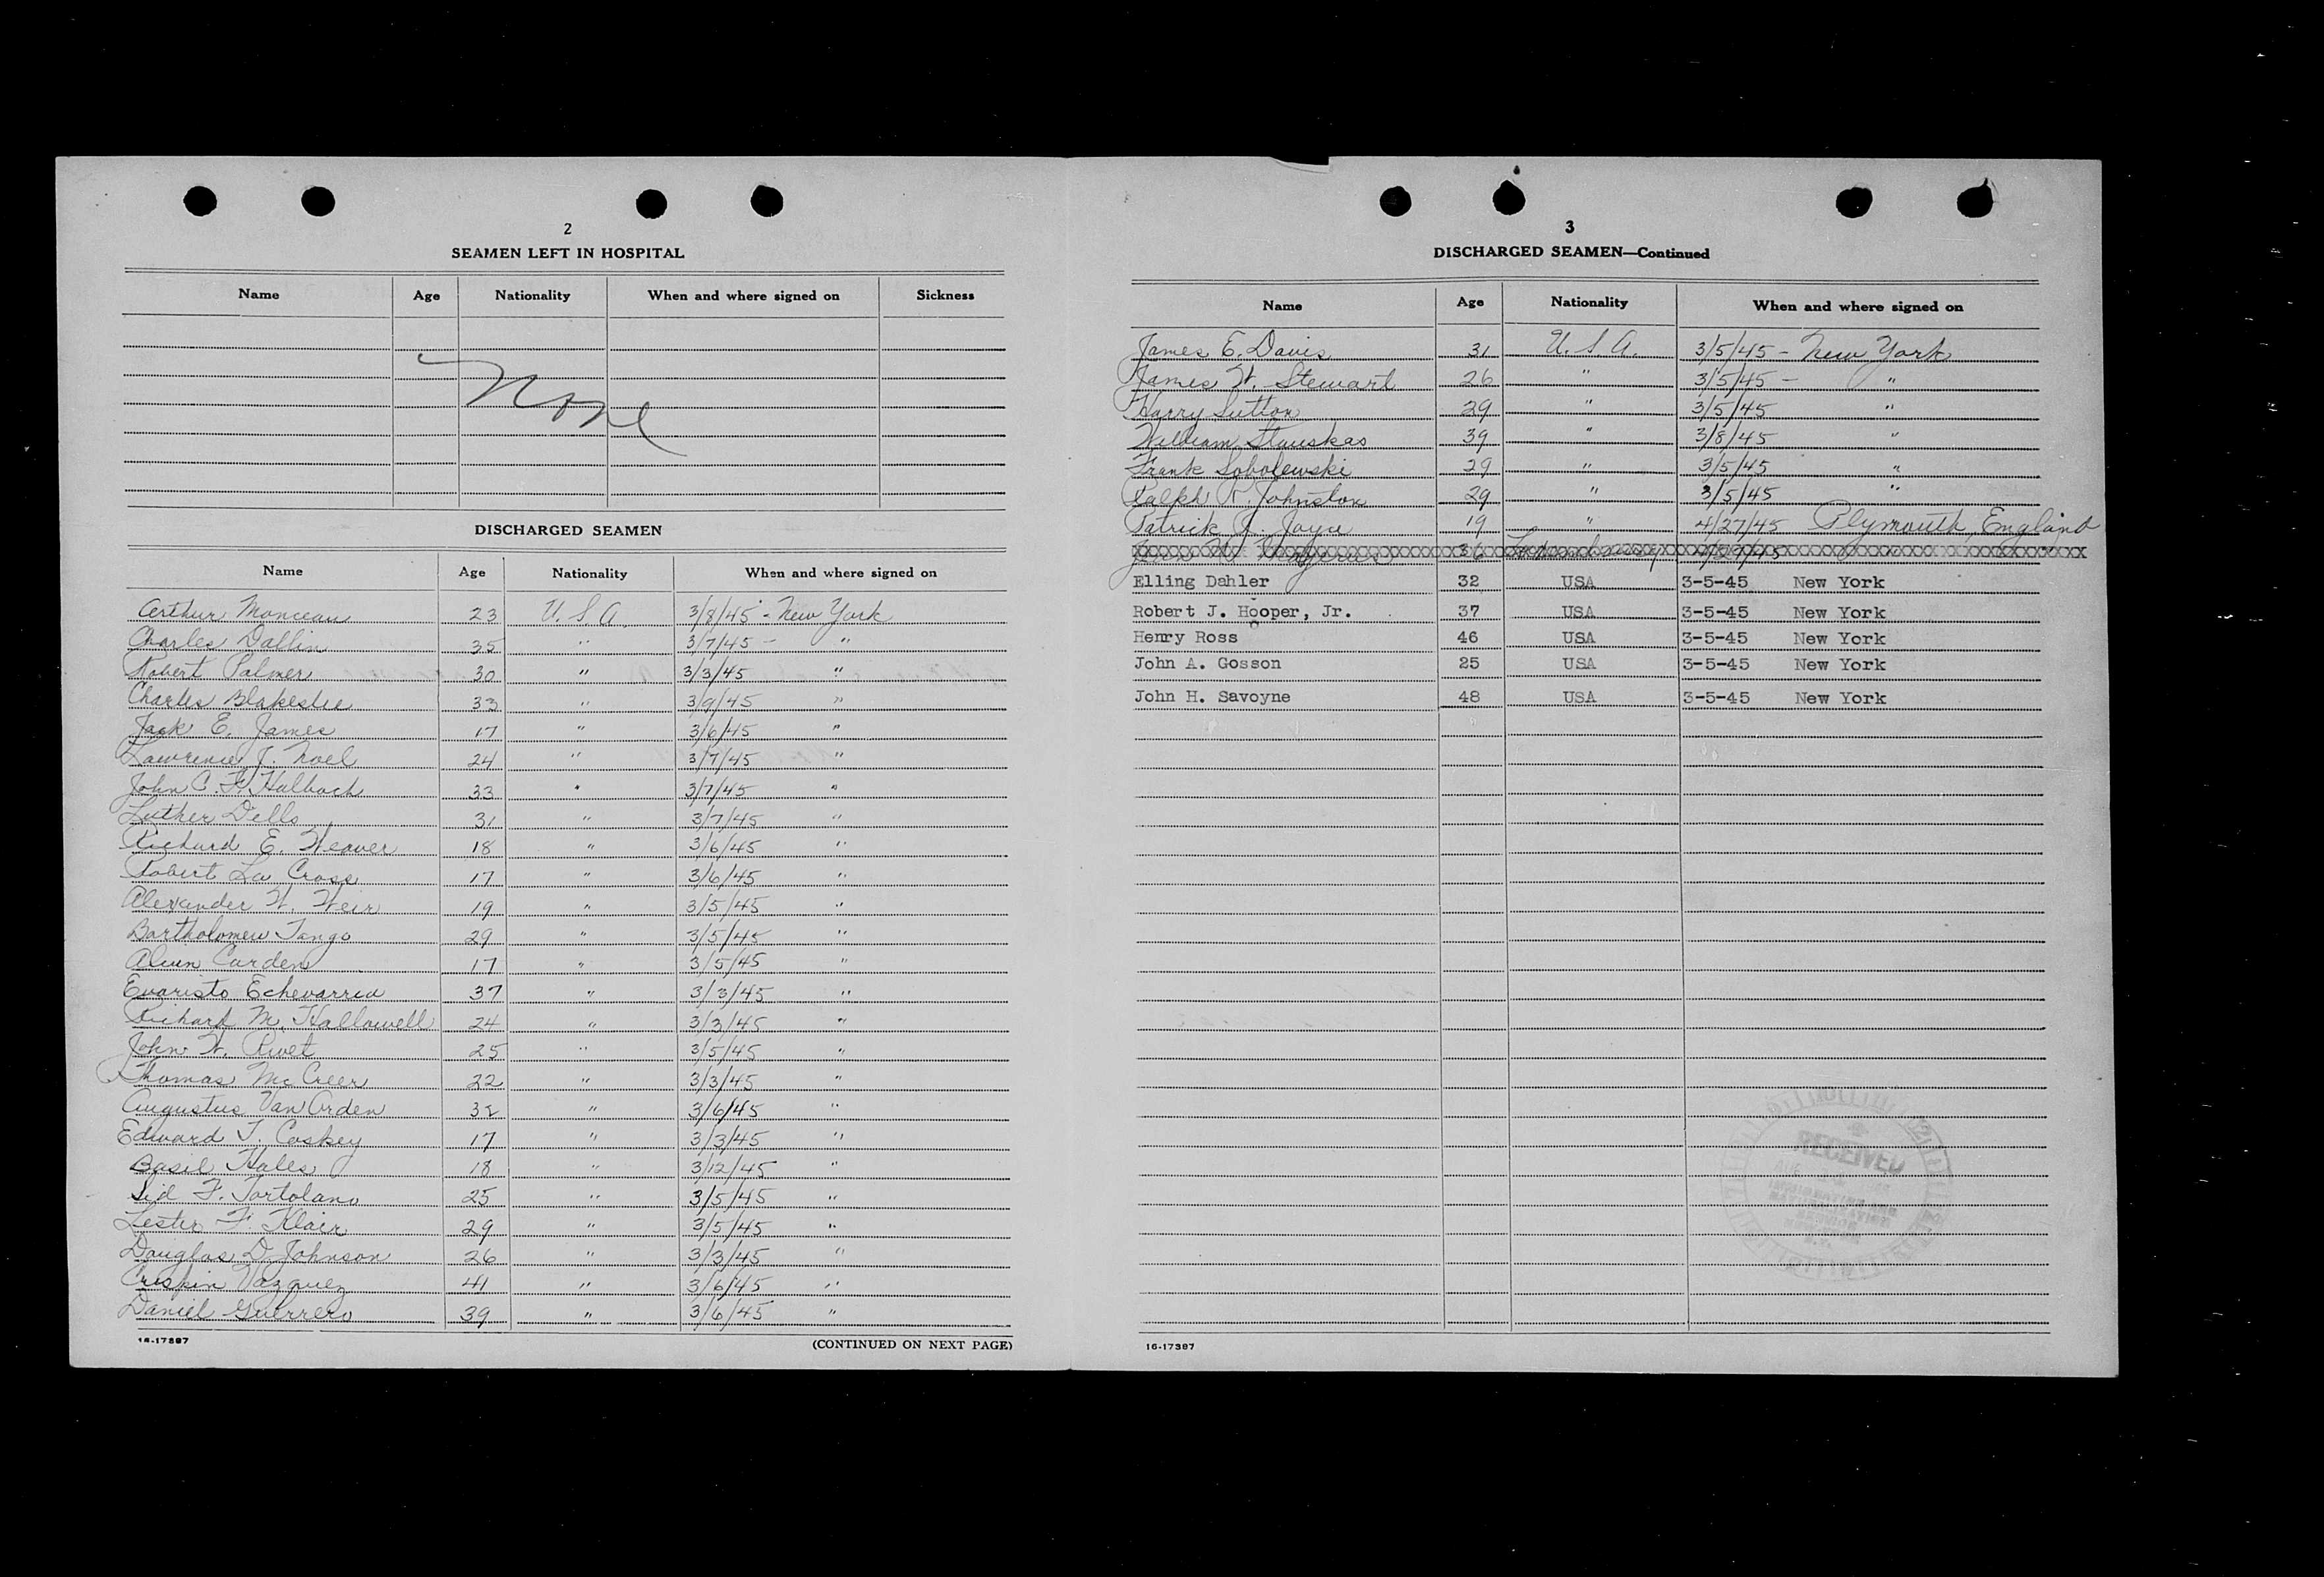 2
SEAMEN LEFT IN HOSPITAL
Name Age Nationality When and where signed on Sickness
None
DISCHARGED SEAMEN
Name Age Nationality When and where signed on
Arthur Monceau 23 U.S.A. 3/8/45 - New York
Charles Dallin 35 " 3/7/45 - "
Robert Palmer 30 " 3/3/45 "
Charles Blakeslee 33 " 3/9/45 "
Jack E. James 17 " 3/6/45 "
Lawrence J. Noel 24 " 3/7/45 "
John C. F. Halbach 33 " 3/7/45 "
Luther Dells 31 " 3/7/45 "
Richard E. Weaver 18 " 3/6/45 "
Robert La Cross 17 " 3/6/45 "
Alexander W. Weir 19 " 3/5/45 "
Bartholomew Tango 29 " 3/5/45 "
Alvin Carden 17 " 3/5/45 "
Evaristo Echevarria 37 " 3/3/45 "
Richard M. Hallowell 24 " 3/3/45 "
John W. Rivet 25 " 3/5/45 "
Thomas McCreer 22 " 3/3/45 "
Augustus Van Orden 32 " 3/6/45 "
Edward T. Caskey 17 " 3/3/45 "
Basil Hales 18 " 3/12/45 "
Sid F. Tortolano 25 " 3/5/45 "
Lester F. Klair 29 " 3/5/45 "
Douglas D. Johnson 26 " 3/3/45 "
Crispin Vazquez 41 " 3/6/45 "
Daniel Guerrero 39 " 3/6/45 "
16-17387 (CONTINUED ON NEXT PAGE)
3
DISCHARGED SEAMEN—Continued
Name Age Nationality When and where signed on
James E. Davis 31 U.S.A. 3/5/45 - New York
James W. Stewart 26 " 3/5/45 - "
Harry Sutton 29 " 3/5/45 "
William Stauskas 39 " 3/8/45 "
Frank Sobolewski 29 " 3/5/45 "
Ralph Johnston 29 " 3/5/45 "
Patrick J. Joyce 19 " 4/27/45 Plymouth, England
36
Elling Dahler 32 USA 3-5-45 New York
Robert J. Hooper, Jr. 37 USA 3-5-45 New York
Henry Ross 46 USA 3-5-45 New York
John A. Gosson 25 USA 3-5-45 New York
John H. Savoyne 48 USA 3-5-45 New York
RECEIVED
IMMIGRATION AND
NATURALIZATION
SERVICE
N.Y.
16-17387